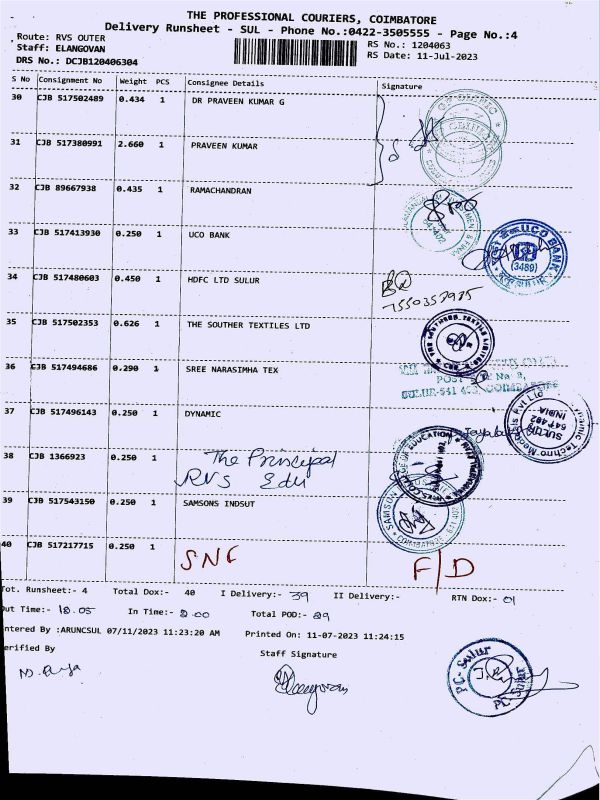 THE PROFESSIONAL COURIERS, COIMBATORE
Delivery Runsheet - SUL - Phone No.:0422-3505555 - Page No.:4
Route: RVS OUTER
Staff: ELANGOVAN
DRS No.: DCJB120406304
RS No.: 1204063
RS Date: 11-Jul-2023
S No Consignment No Weight PCS Consignee Details Signature
30 CJB 517502489 0.434 1 DR PRAVEEN KUMAR G
31 CJB 517380991 2.660 1 PRAVEEN KUMAR
32 CJB 89667938 0.435 1 RAMACHANDRAN
641402
33 CJB 517413930 0.250 1 UCO BANK
UCO BANK
(3489)
34 CJB 517480603 0.450 1 HDFC LTD SULUR
35 CJB 517502353 0.626 1 THE SOUTHER TEXTILES LTD
36 CJB 517494686 0.290 1 SREE NARASIMHA TEX
37 CJB 517496143 0.250 1 DYNAMIC
SULUR
641 402
INDIA
38 CJB 1366923 0.250 1 The Principal
RVS Edu
39 CJB 517543150 0.250 1 SAMSONS INDSUT
40 CJB 517217715 0.250 1 SNF F/D
Tot. Runsheet:- 4 Total Dox:- 40 I Delivery:- 39 II Delivery:- RTN Dox:- 01
Out Time:- 12.05 In Time:- 2.00 Total POD:- 29
ntered By :ARUNCSUL 07/11/2023 11:23:20 AM Printed On: 11-07-2023 11:24:15
erified By Staff Signature
PC- Sulur
PC- Sulur